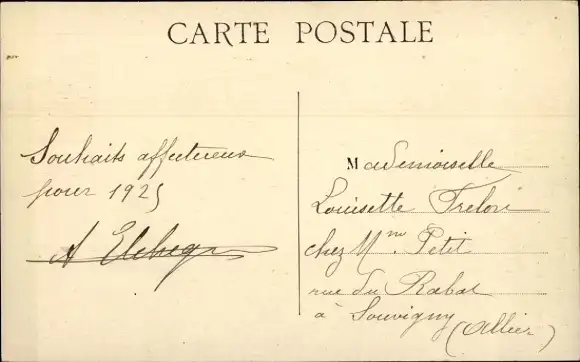 CARTE POSTALE
Souhaits affectueux
pour 1925
Mademoiselle
Louisette
chez Mme. Petit
rue du Rabat
à Souvigny
(Allier)